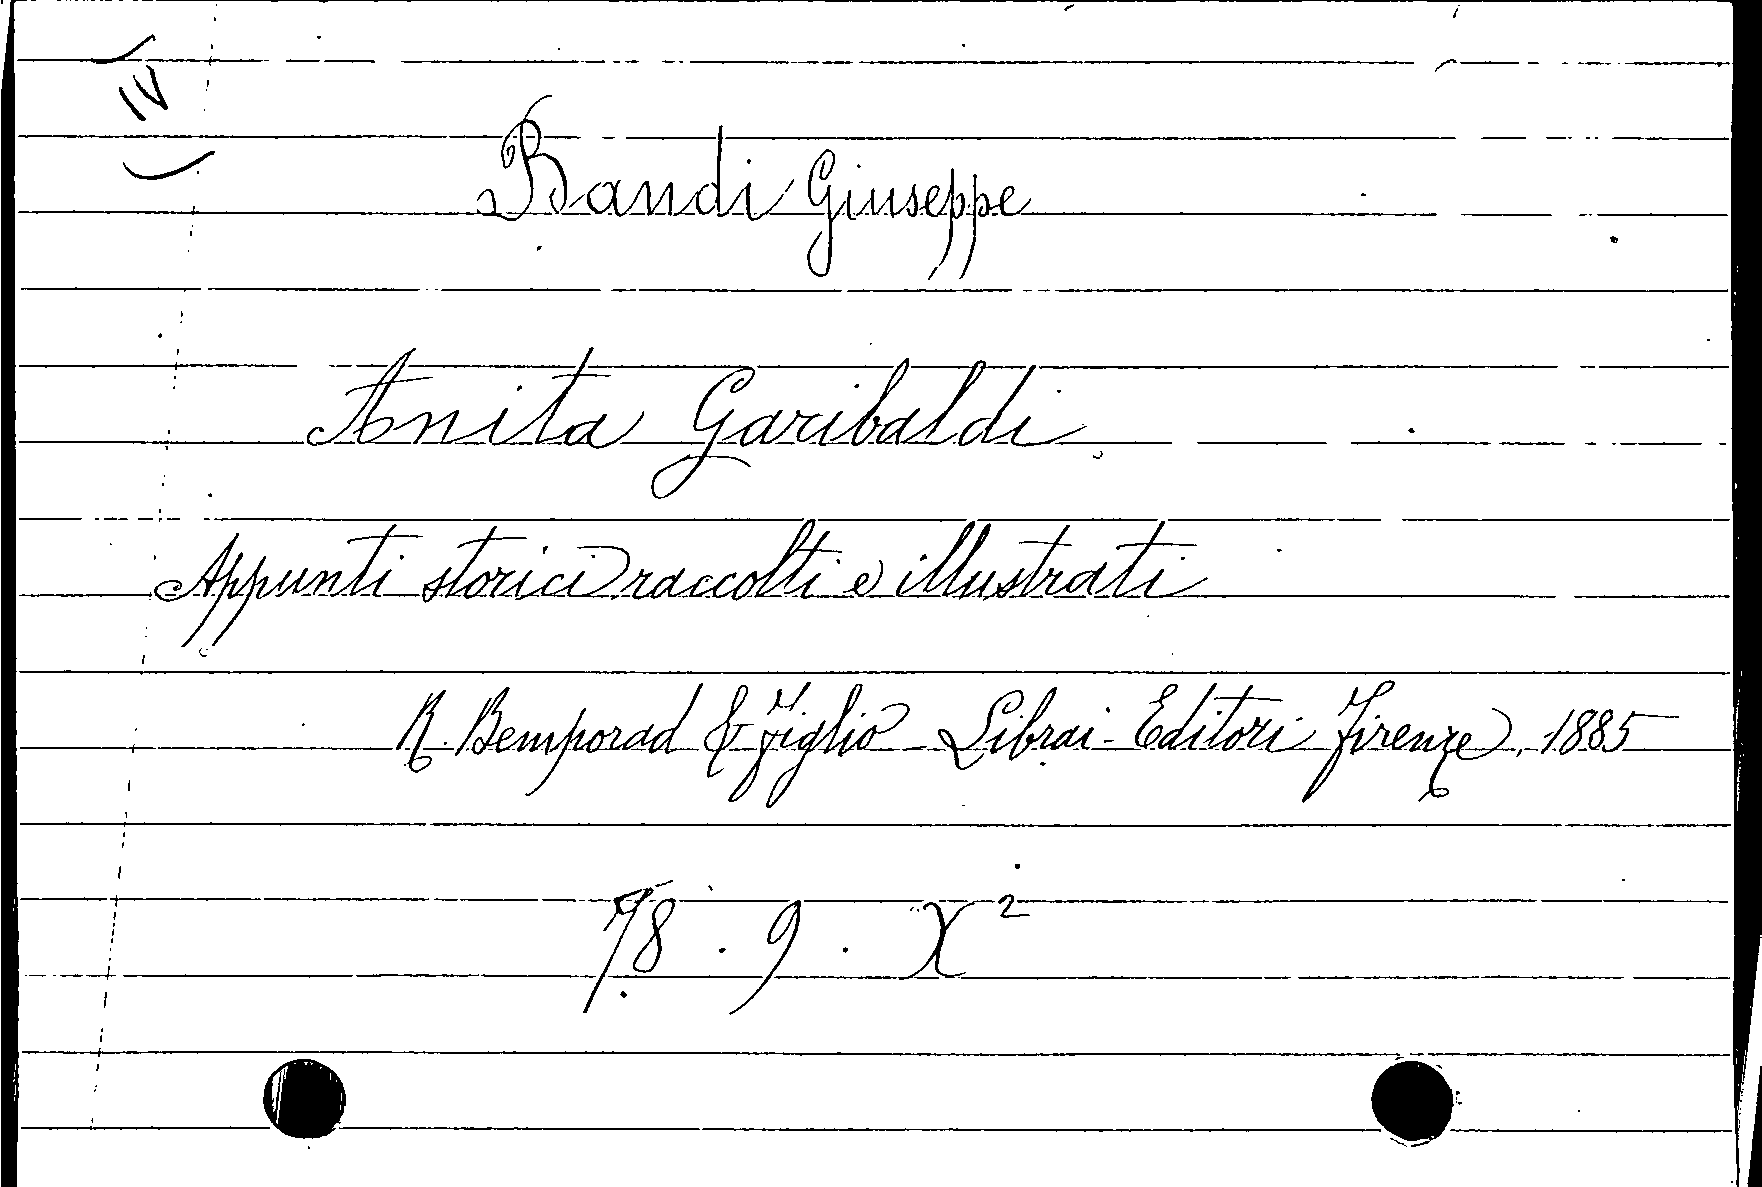 IV
Bandi Giuseppe
Anita Garibaldi
Appunti storici raccolti e illustrati
R. Bemporad & Figlio - Librai - Editori Firenze, 1885
78 . 9 . X²